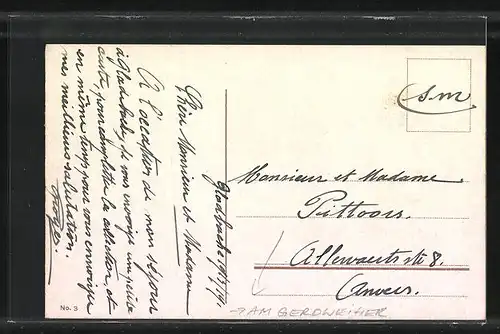 Gladbach
Chère Monsieur et Madame
A l'occasion de mon séjour
à Gladbach, je vous envoie une
carte, pour compléter la collection, et
en même temps pour vous envoyer
mes meilleures salutations.
S.M.
Monsieur et Madame
Pittoors.
Allewaerts str 8.
Anvers.
→ AM GERDWEIHER
No. 3